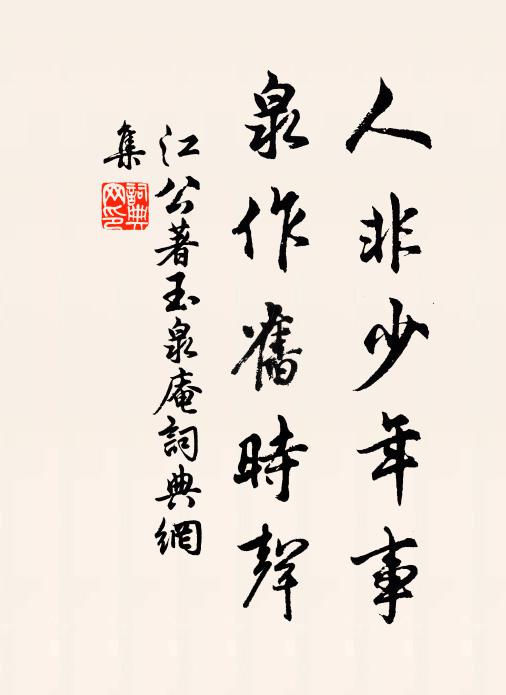 人非少年事
泉作舊時聲
江公著玉泉庵詞典網
集
詞典
网印